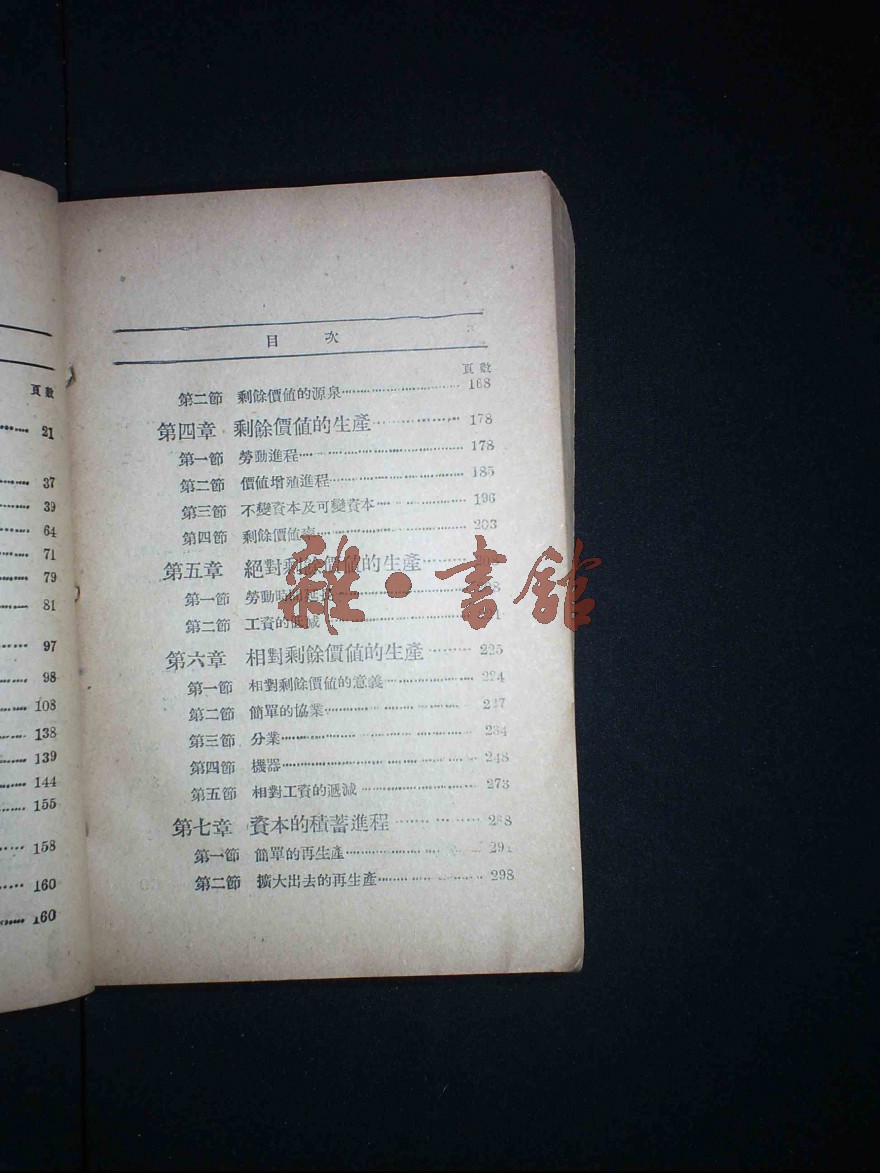 頁數
21
37
39
64
71
79
81
97
98
108
138
139
144
155
158
160
160
目 次
頁數
第二節 剩餘價値的源泉 168
第四章 剩餘價値的生產 178
第一節 勞動進程 178
第二節 價値增殖進程 185
第三節 不變資本及可變資本 196
第四節 剩餘價値率 203
第五章 絕對剩餘價値的生產
第一節 勞動時間延長
第二節 工資的低減
第六章 相對剩餘價値的生產 225
第一節 相對剩餘價値的意義
第二節 簡單的協業
第三節 分業 234
第四節 機器 248
第五節 相對工資的遞減 273
第七章 資本的積蓄進程
第一節 簡單的再生產
第二節 擴大出去的再生產 298
雜·書館